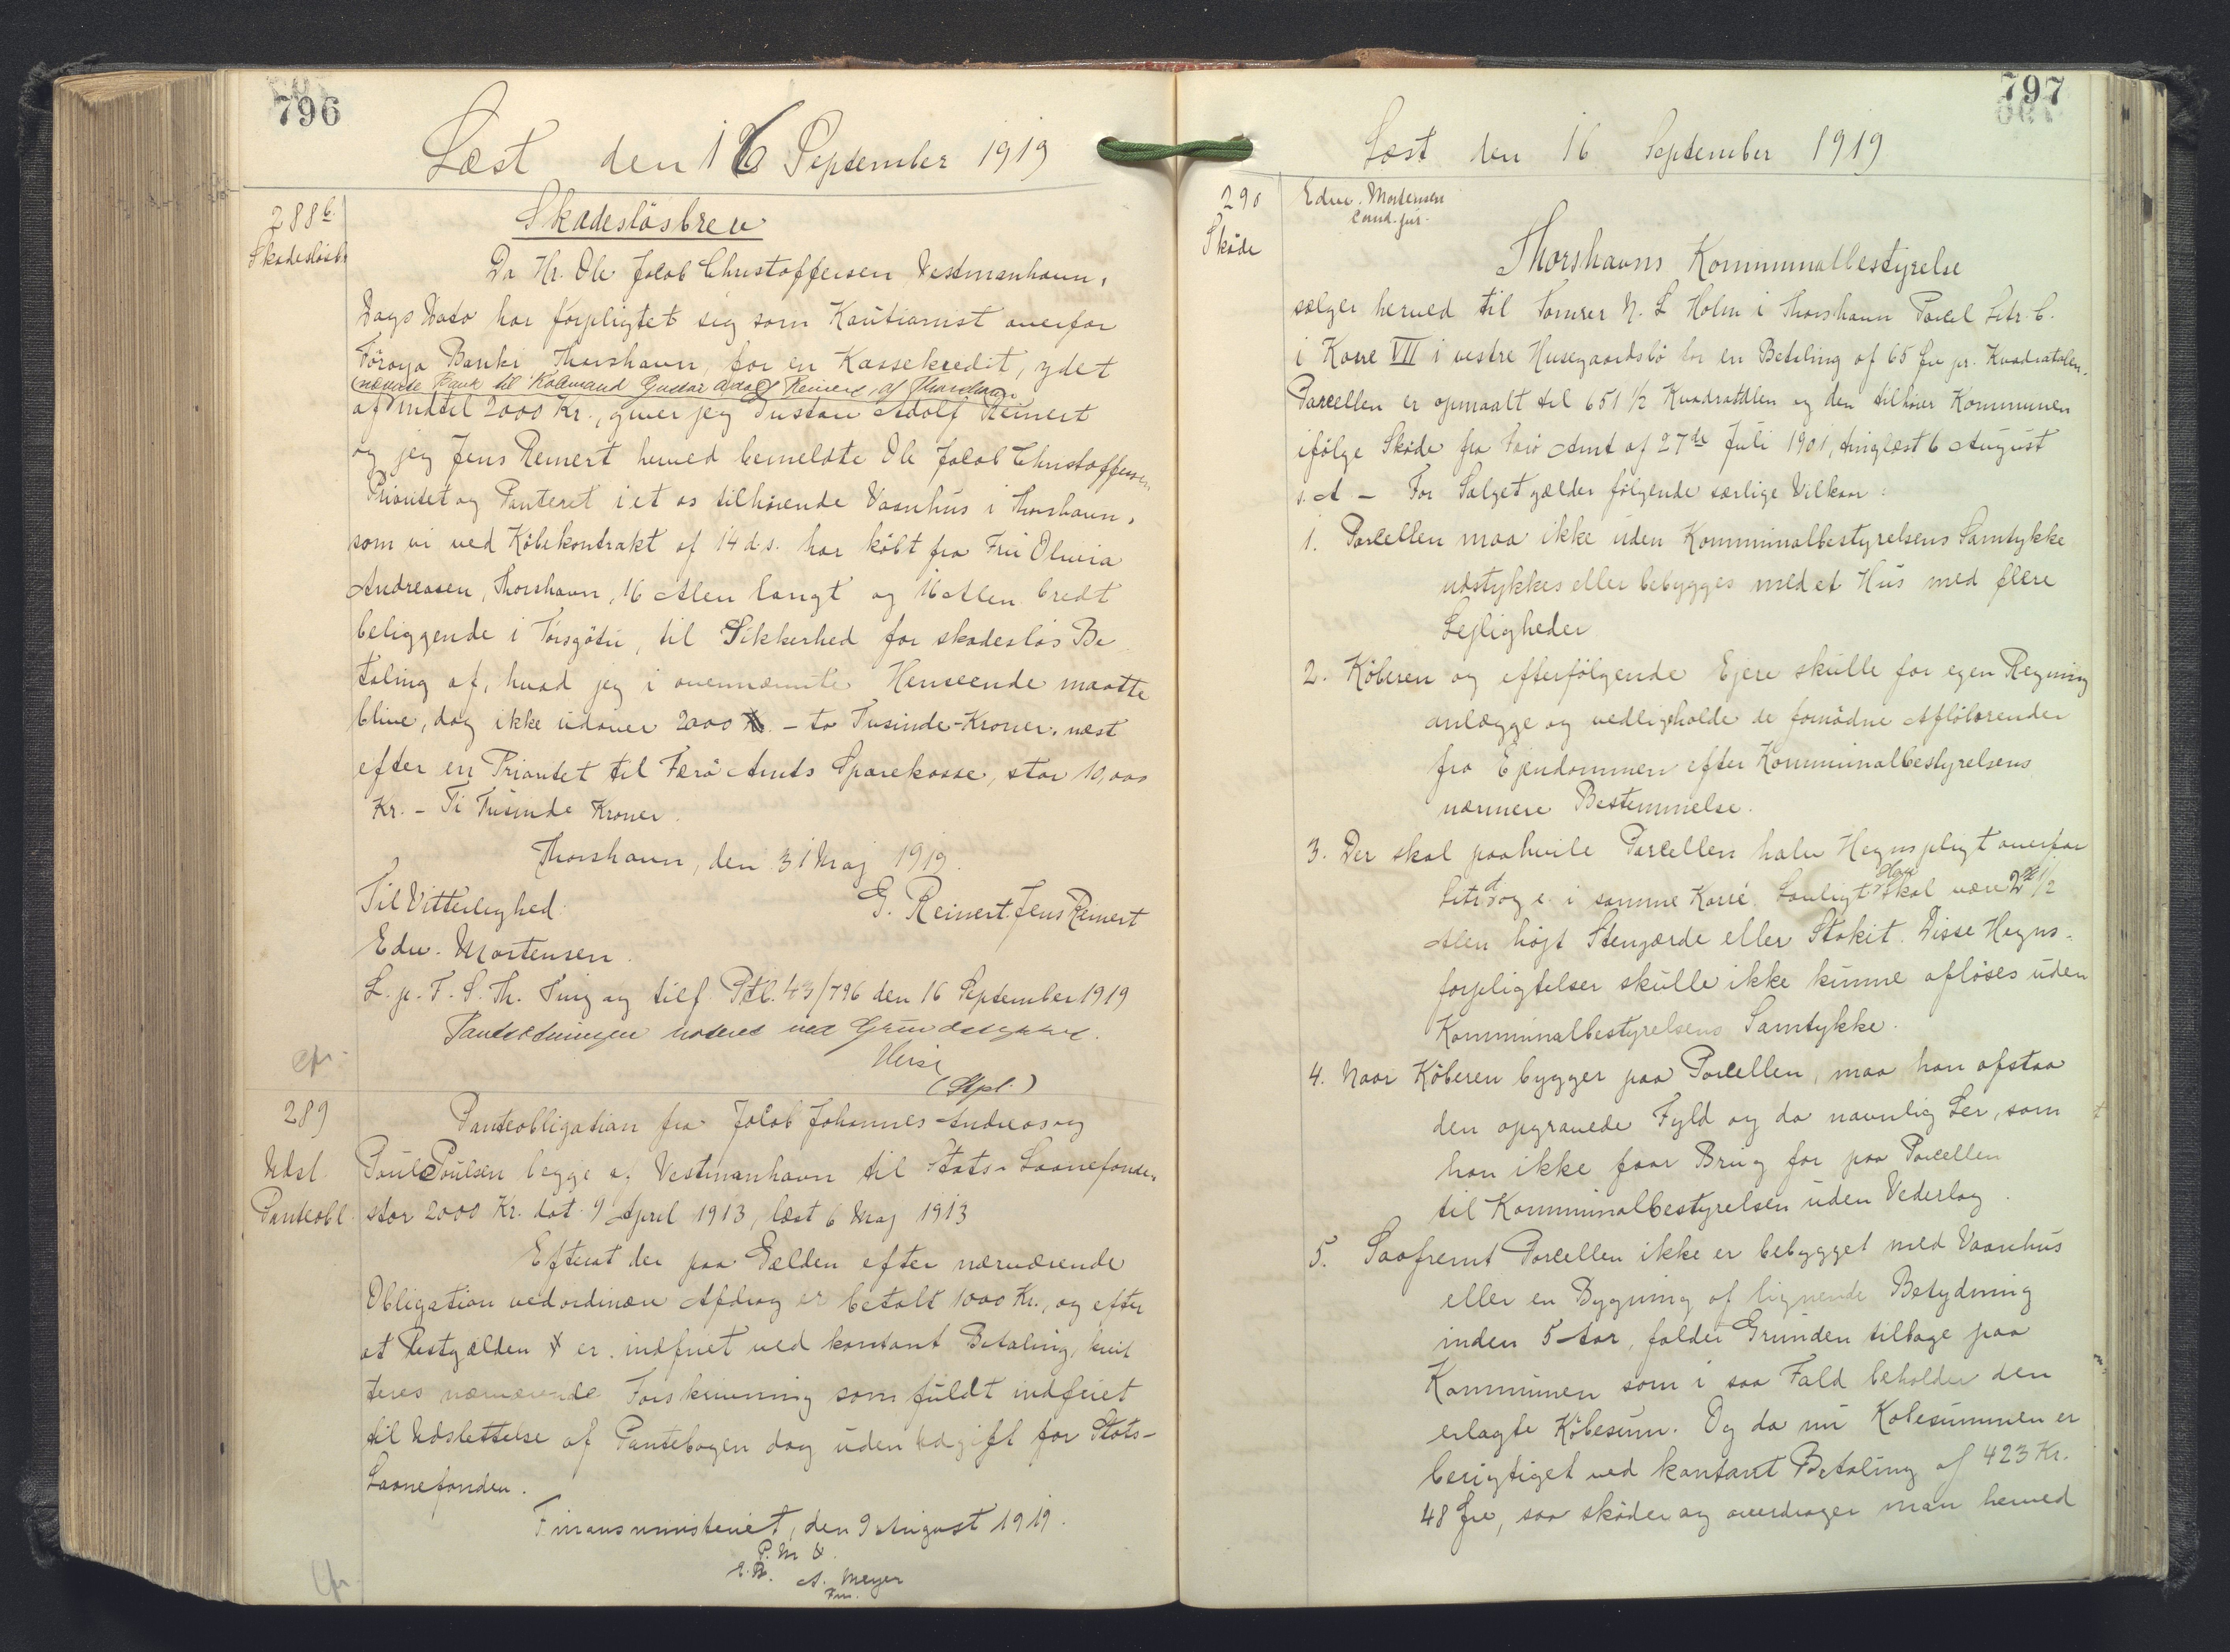 796
Læst den 16 September 1919
288 b.
Skadesløsbr.
Skadesløsbrev
Da Hr. Ole Jacob Christoffersen, Vestmanhavn,
Dags Dato har forpligtet sig som Kautionist overfor
Föroya Banki Thorshavn, for en Kassekredit, ydet
(nævnte Bank til Købmand Gustav Adolf Reinert, af Thorshavn
af indtil 2000 Kr., giver jeg Gustav Adolf Reinert
og jeg Jens Reinert herved bemeldte Ole Jacob Christoffersen
Prioritet og Panteret i et os tilhørende Vaanhus i Thorshavn,
som vi ved Købekontrakt af 14 d.s. har købt fra Fru Olivia
Andreasen, Thorshavn, 16 Alen langt og 16 Alen bredt
beliggende i Torsgötu, til Sikkerhed for skadesløs Be
taling af, hvad jeg i ovennævnte Henseende maatte
blive, dog ikke udover 2000 Kr. – to Tusinde-Kroner, næst
efter en Prioritet til Færø Amts Sparekasse, stor 10,000
Kr. – Ti Tusinde Kroner.
Thorshavn, den 31 Maj 1919.
Til Vitterlighed:
G. Reinert. Jens Reinert
Edw. Mortensen.
L. p. F. S. Th. Ting og tilf. Ptl. 43/796 den 16 September 1919
Pantsætningen noteret ved Grundstykket.
(Stpl.)
289
Udsl.
Panteobl.
Panteobligation fra Jacob Johannes Andreas og
Poul Poulsen begge af Vestmanhavn til Stats-Laanefonden,
stor 2000 Kr. dat. 9 April 1913, læst 6 Maj 1913
Efterat der paa Gælden efter nærværende
Obligation ved ordinær Afdrag er betalt 1000 Kr., og efter
at Restgælden er indfriet ved kontant Betaling, kvit
teres nærværende Forskrivning som fuldt indfriet
til Udslettelse af Pantebogen dog uden Udgift for Stats-
Laanefonden.
Finansministeriet, den 9 August 1919.
P. M. V.
E. B.
A. Meyer
Fm.
797
Læst den 16 September 1919
290
Skøde
Edw. Mortensen
cand. jur.
Thorshavns Kommunalbestyrelse
sælger herved til Tømrer N. L. Holm i Thorshavn Parcel Litr. C.
i Karre VII i vestre Husegaardsbø for en Betaling af 65 Øre pr. Kvadratalen.
Parcellen er opmaalt til 651 1/2 Kvadratalen og den tilhører Kommunen
ifølge Skøde fra Færø Amt af 27de Juli 1901, tinglæst 6 August
s. A. – For Salget gælder følgende særlige Vilkaar:
1. Parcellen maa ikke uden Kommunalbestyrelsens Samtykke
udstykkes eller bebygges med et Hus med flere
Lejligheder
2. Køberen og efterfølgende Ejere skulle for egen Regning
anlægge og vedligeholde de fornødne Afløbsrender
fra Ejendommen efter Kommunalbestyrelsens
nærmere Bestemmelse.
3. Der skal paahvile Parcellen halv Hegnspligt overfor
Litr d og e i samme Karré. Saavligt skal være 2 1/2
Alen højt Stengærde eller Stakit. Disse Hegns-
forpligtelser skulle ikke kunne afløses uden
Kommunalbestyrelsens Samtykke.
4. Naar Køberen bygger paa Parcellen, maa han afstaa
den opgravede Fyld og da navnlig Ler, som
han ikke faar Brug for paa Parcellen
til Kommunalbestyrelsen uden Vederlag.
5. Saafremt Parcellen ikke er bebygget med Vaanhus
eller en Bygning af lignende Betydning
inden 5 Aar, falder Grunden tilbage paa
Kommunen som i saa Fald beholder den
erlagte Købesum. Og da nu Købesummen er
berigtiget ved kontant Betaling af 423 Kr.
48 Øre, saa skøder og overdrager man herved